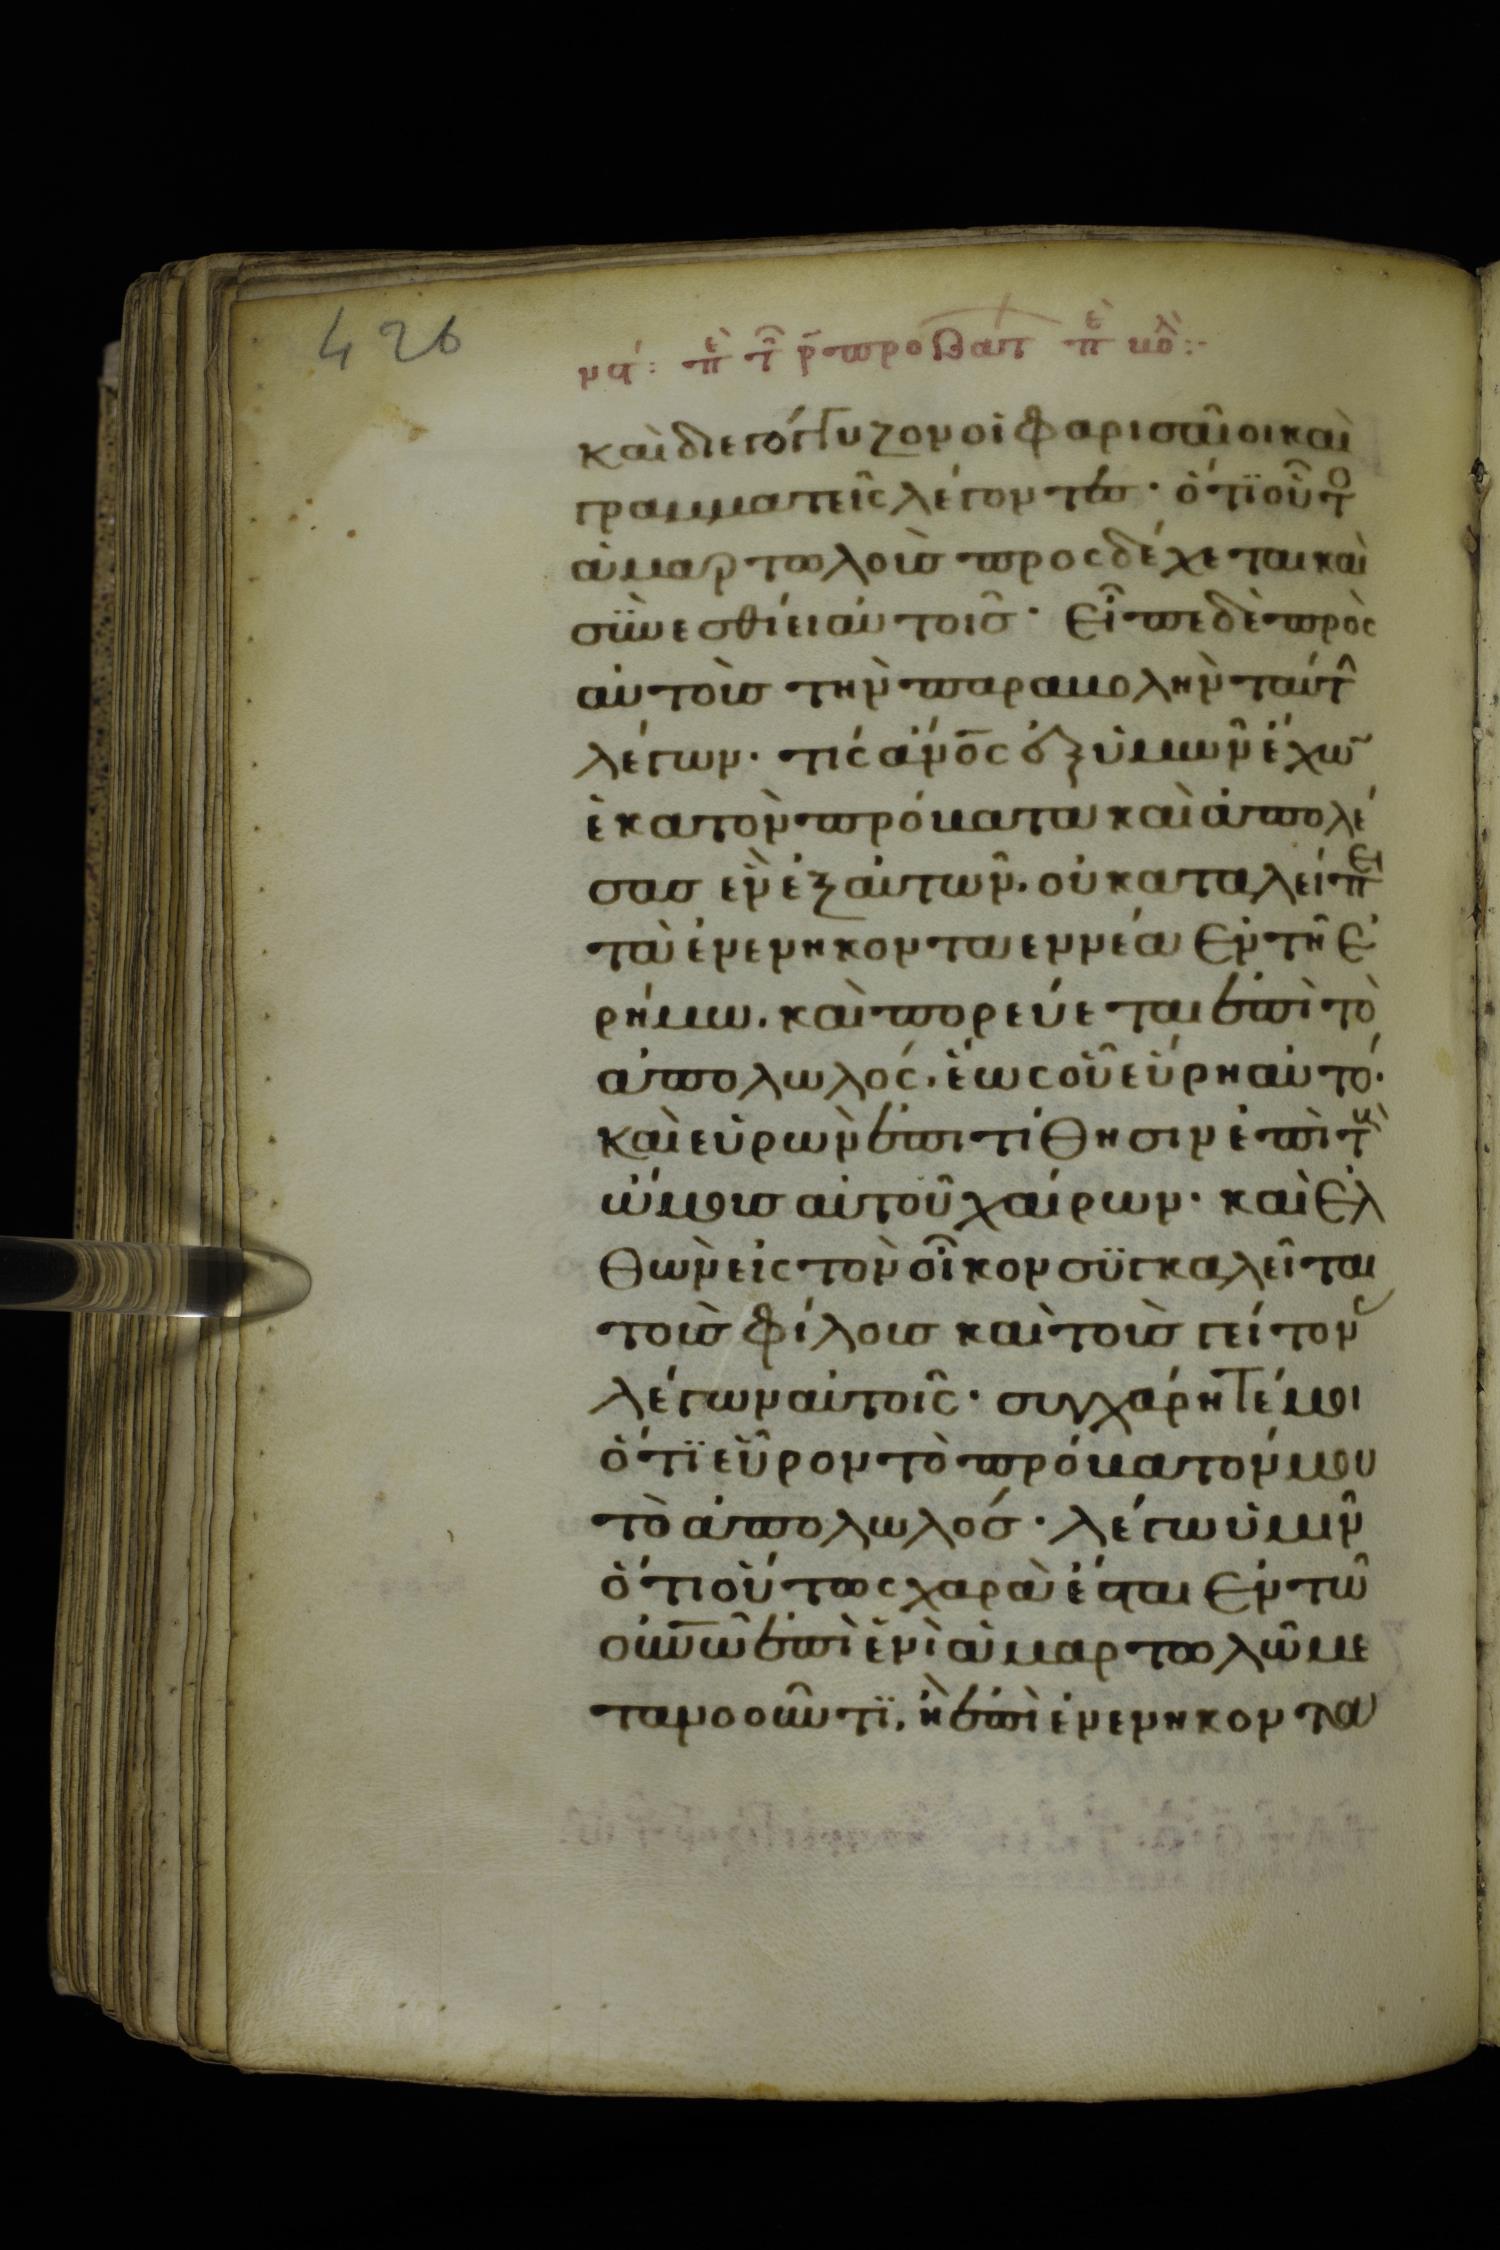 426
να: πε τ ρ προβατ πε
και διεγόγγυζον οἱ φαρισαῖοι και
γραμματεῖς λέγοντες· ὅτι οὗτο
ἁμαρτωλοὺς προσδέχεται και
συνεσθίει αὐτοῖς· Εἶπε δὲ πρὸς
αὐτοὺς τὴν παραβολὴν ταύτ
λέγων· τίς ἄνος ἐξ ὑμῶν ἔχω
ἑκατὸν πρόβατα καὶ ἀπολέ
σας ἓν ἐξ αὐτῶν. οὐ καταλείπει
τὰ ἐνενηκοντα εννέα Ἐν τῆ Ἐ
ρήμω. καὶ πορεύεται ἐπὶ τὸ
ἀπολωλός. ἕως οὗ εὕρη αὐτό.
καὶ εὑρὼν ἐπιτίθησιν ἐπὶ τοὺς
ὤμους αὐτοῦ χαίρων· καὶ Ἐλ
θὼν εἰς τὸν οἶκον συγκαλεῖται
τοὺς φίλους καὶ τοὺς γείτον
λέγων αὐτοῖς· συγχάρητέ μοι
ὅτι εὗρον τὸ πρόβατόν μου
τὸ ἀπολωλός· λέγω ὑμῖν
ὅτι οὕτως χαρὰ ἔσται Ἐν τῶ
οὐνῶ ἐπὶ ἑνὶ ἁμαρτωλῶ με
τανοοῦντι, ἢ ἐπὶ ἐνενηκοντα